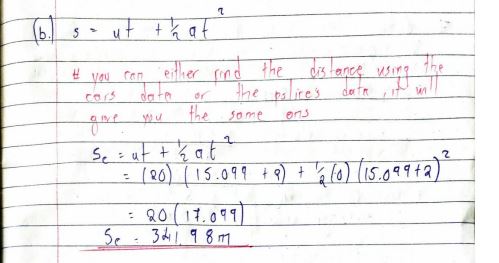 (b.) s = ut + ½at²
# you can either find the distance using the
cars data or the police's data, it will
give you the same ans
Sc = ut + ½ a.t²
= (20) (15.099 + 2) + ½(0)(15.099+2)²
= 20(17.099)
Sc = 341.98m